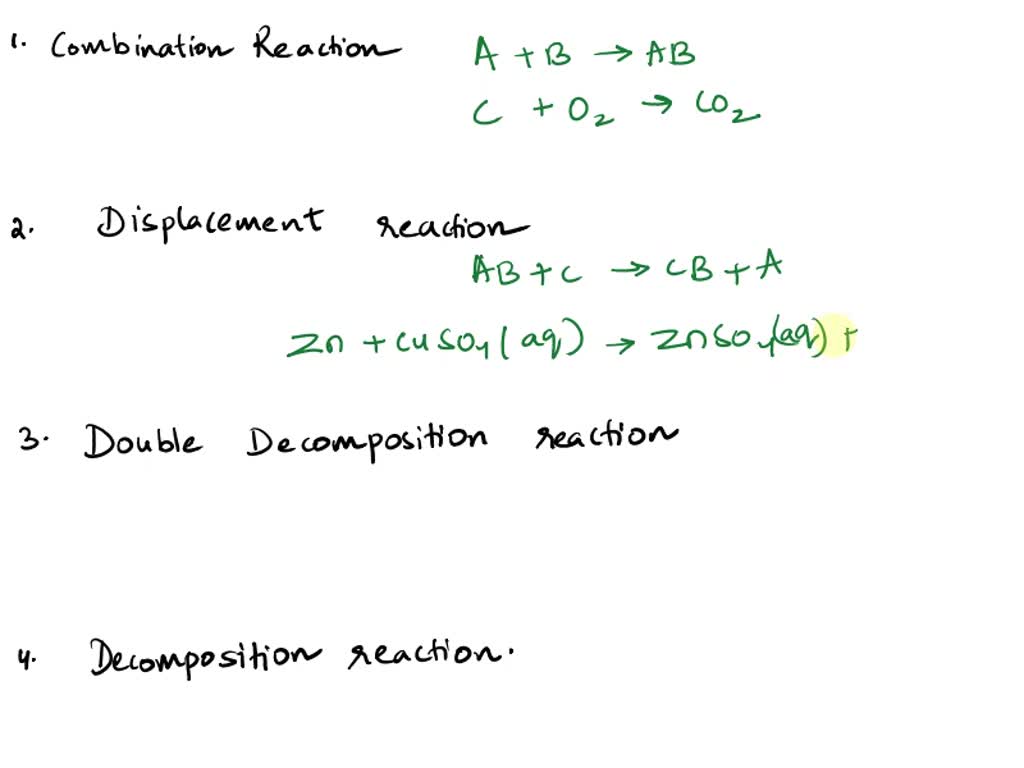 1. Combination Reaction A + B → AB
C + O2 → CO2
2. Displacement reaction
AB + C → CB + A
Zn + CuSO4 (aq) → ZnSO4 (aq) +
3. Double Decomposition reaction
4. Decomposition reaction.